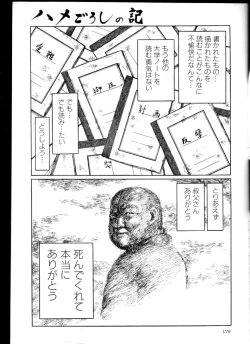 ハメごろしの記
書かれたもの…
描かれたものを
読むことがこんなに
不愉快だなんて…
もう他の
大学ノートを
読む勇気はない
でも…
でも読みたーい
どうしよう…
計画
反撃
とりあえず
叔父さん
ありがとう
死んでくれて
本当に
ありがとう
179